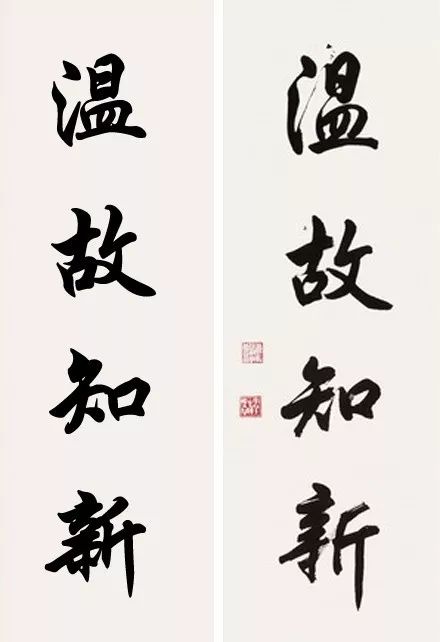 温故知新
温故知新